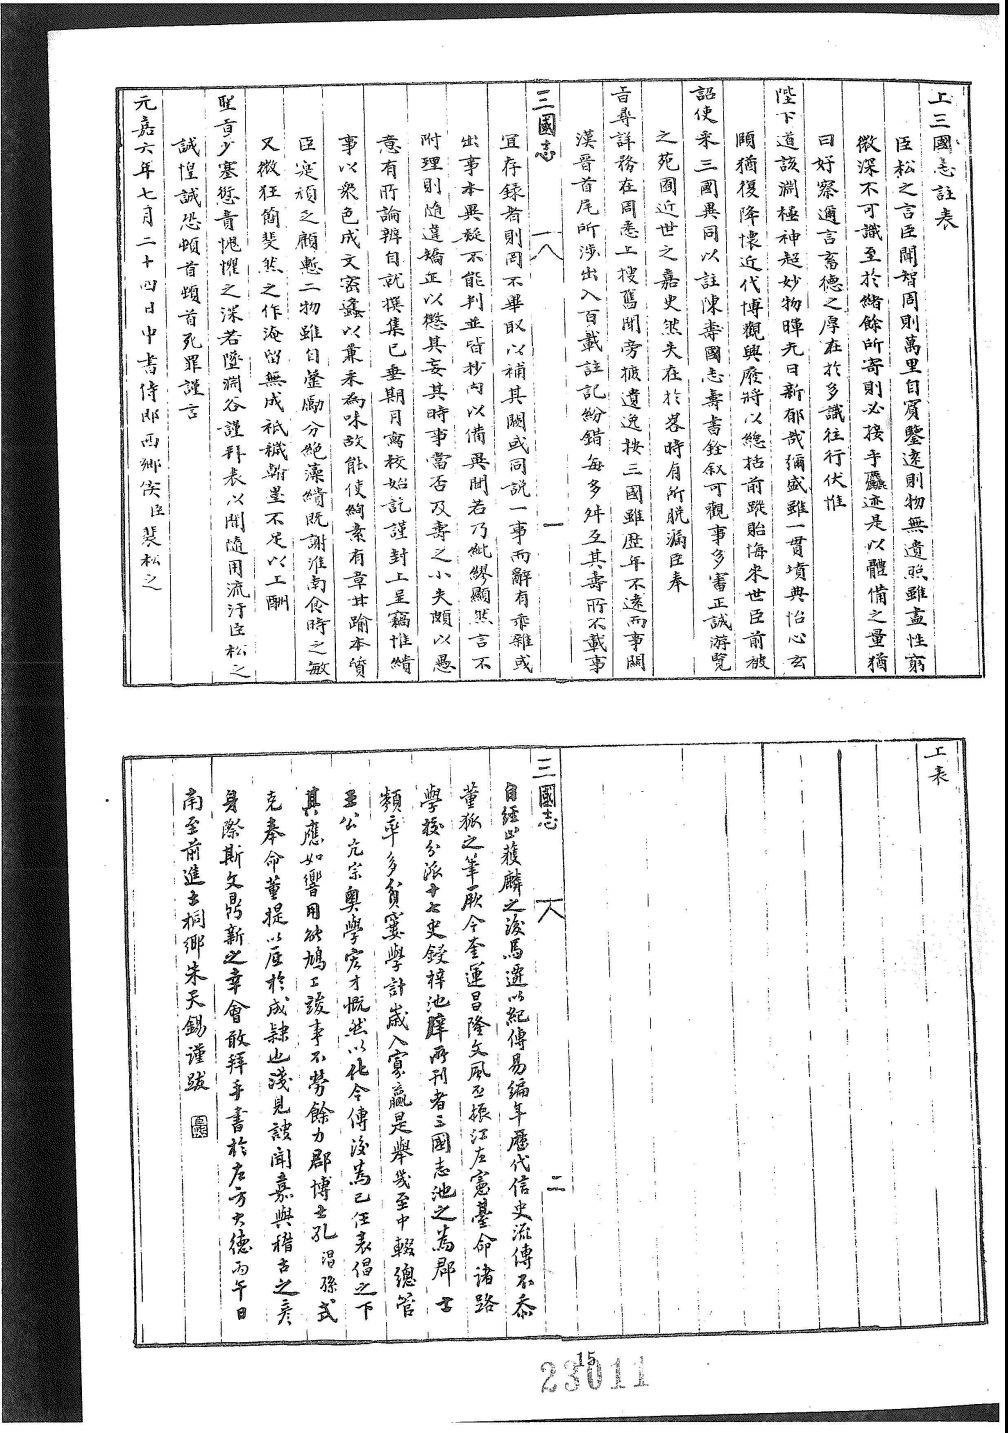 上三國志註表
臣松之言臣聞智周則萬里自賓鑒遠則物無遺照雖盡性窮
微深不可識至於緒餘所寄則必接乎麤迹是以體備之量猶
曰好察邇言畜德之厚在於多識往行伏惟
陛下道該淵極神超妙物暉光日新郁哉彌盛雖一貫墳典怡心玄
賾猶復降懷近代博觀興廢將以總括前蹤貽誨來世臣前被
詔使采三國異同以註陳壽國志壽書銓叙可觀事多審正誠游覽
之苑囿近世之嘉史然失在於畧時有所脱漏臣奉
旨尋詳務在周悉上搜舊聞旁摭遺逸按三國雖歷年不遠而事關
漢晉首尾所涉出入百載註記紛錯每多舛互其壽所不載事
三國志 一
宜存録者則罔不畢取以補其闕或同說一事而辭有乖雜或
出事本異疑不能判並皆抄内以備異聞若乃紕繆顯然言不
附理則隨違矯正以懲其妄其時事當否及壽之小失頗以愚
意有所論辨自就撰集已垂期月寫校始訖謹封上呈竊惟繢
事以衆色成文蜜蠭以兼采為味故能使絢素有章甘踰本質
臣寔頑乏顧慙二物雖自罄勵分絶藻繢既謝淮南食時之敏
又微狂簡斐然之作淹留無成祇穢翰墨不足以上酬
聖旨少塞愆責愧懼之深若墜淵谷謹拜表以聞隨用流汗臣松之
誠惶誠恐頓首頓首死罪謹言
元嘉六年七月二十四日中書侍郎西鄉侯臣裴松之
上表
三國志 二
自經止獲麟之後馬遷以紀傳易編年歷代信史流傳不忝
董狐之筆厥今奎運昌隆文風丕振江左憲臺命諸路
學校分派十七史鋟梓池庠所刊者三國志池之為郡
類率多貧窶學計歲入寡贏是舉幾至中輟總管
王公亢宗奥學宏才慨然以化今傳後為己任表倡之下
其應如響用能鳩工竣事不勞餘力郡博士孔淐孫式
克奉命董提以底於成隸也淺見謏聞嘉與稽古之彦
身際斯文鼎新之幸會敢拜手書於左方大德丙午日
南至前進士桐鄉朱天錫謹跋
15
23011